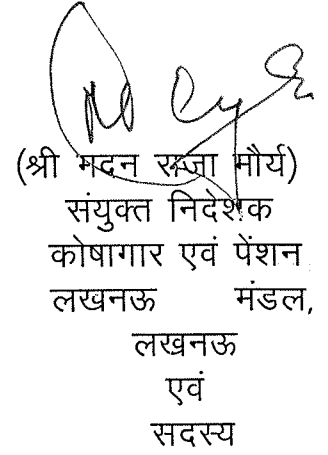 (श्री मदन राजा मौर्य)
संयुक्त निदेशक
कोषागार एवं पेंशन
लखनऊ मंडल,
लखनऊ
एवं
सदस्य